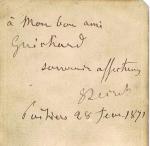 à mon bon ami
Guichard
souvenir affectueux
Poitiers 28 févr. 1871